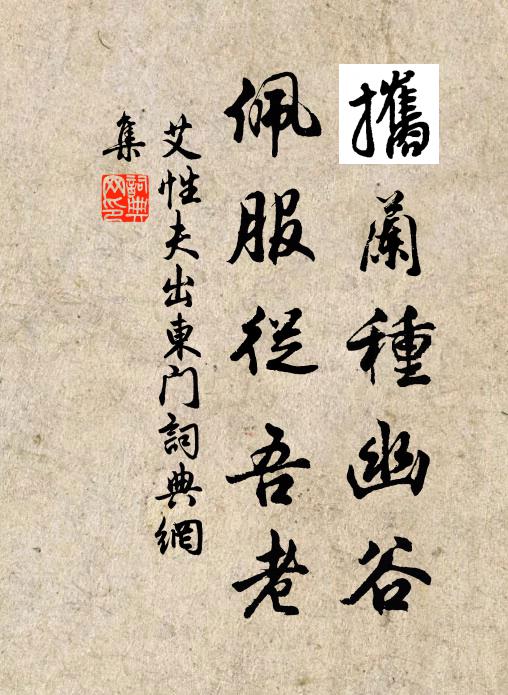 攜蘭種幽谷
佩服從吾老
艾性夫出東门詞典網
集
詞典网印